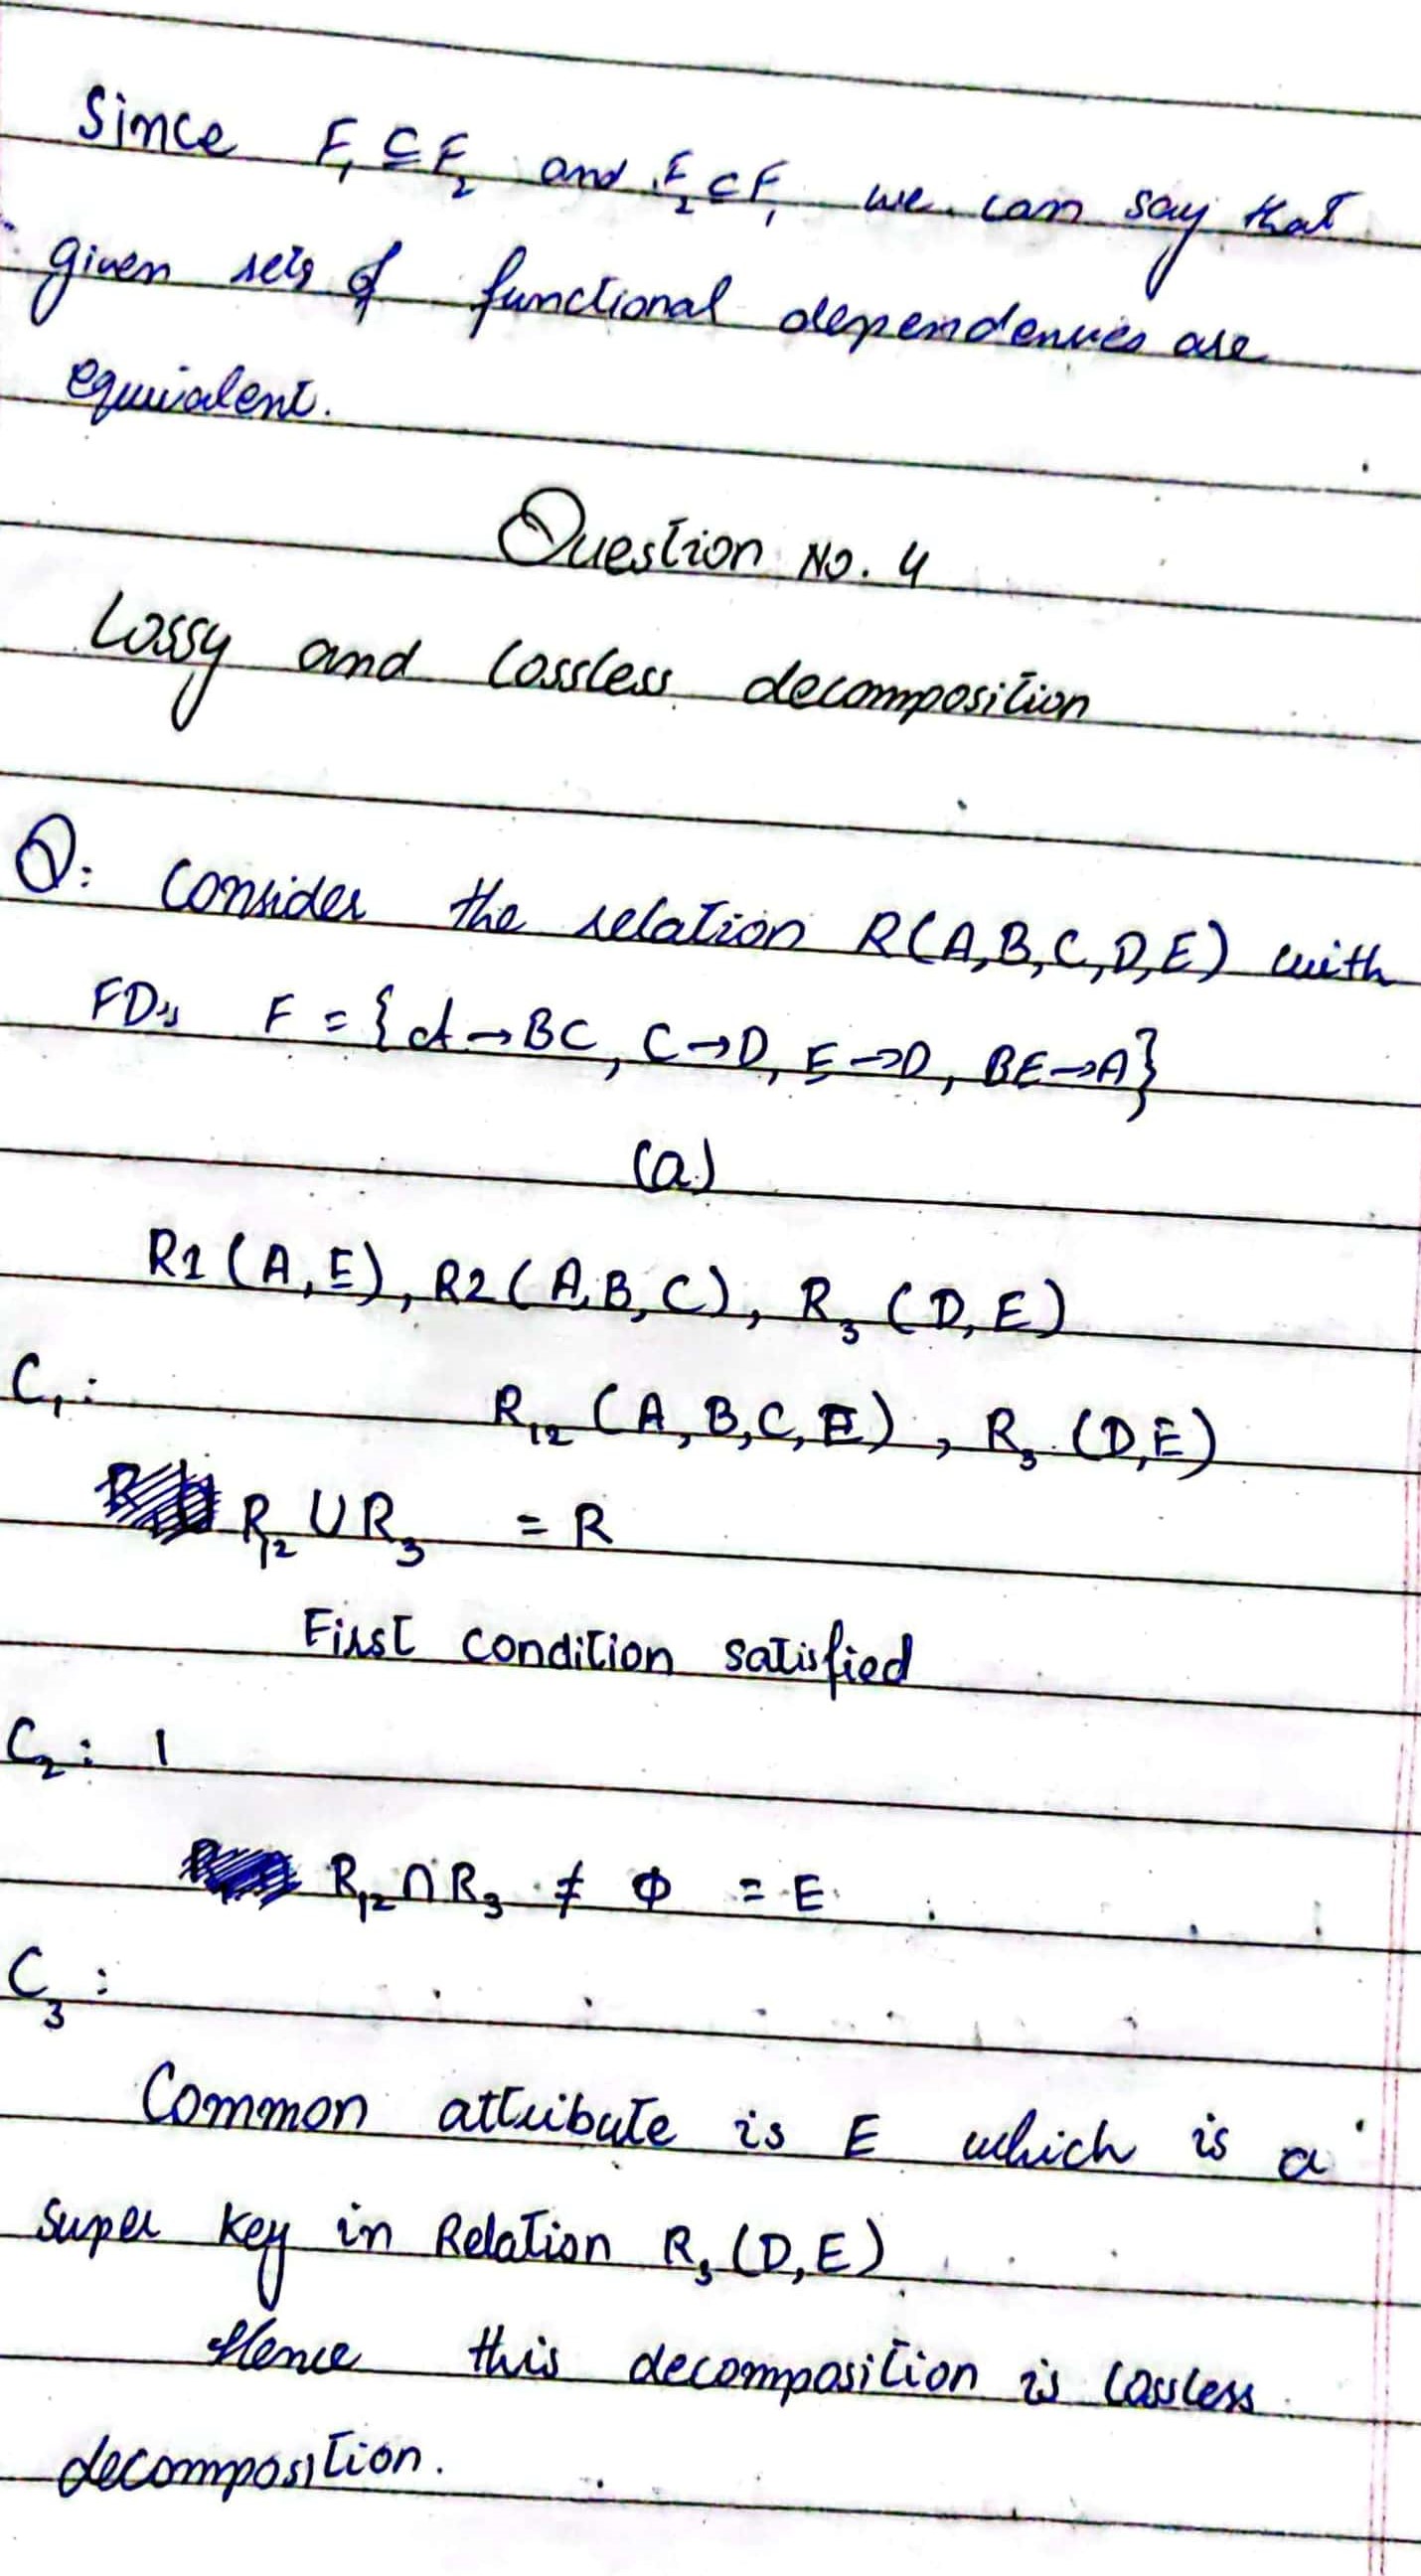 Since F₁ ⊆ F₂ and F₂ ⊂ F₁ we can say that
given sets of functional dependencies are
equivalent.
Question No. 4
Lossy and Lossless decomposition
Q: Consider the relation R(A,B,C,D,E) with
FDs F = {A→BC, C→D, E→D, BE→A}
(a)
R1(A,E), R2(A,B,C), R₃(D,E)
C₁: R₁₂(A,B,C,E), R₃(D,E)
R₁₂ ∪ R₃ = R
First condition satisfied
C₂: 1
R₁₂ ∩ R₃ ≠ Φ = E
C₃:
Common attribute is E which is a
super key in Relation R₃(D,E)
Hence this decomposition is lossless
decomposition.